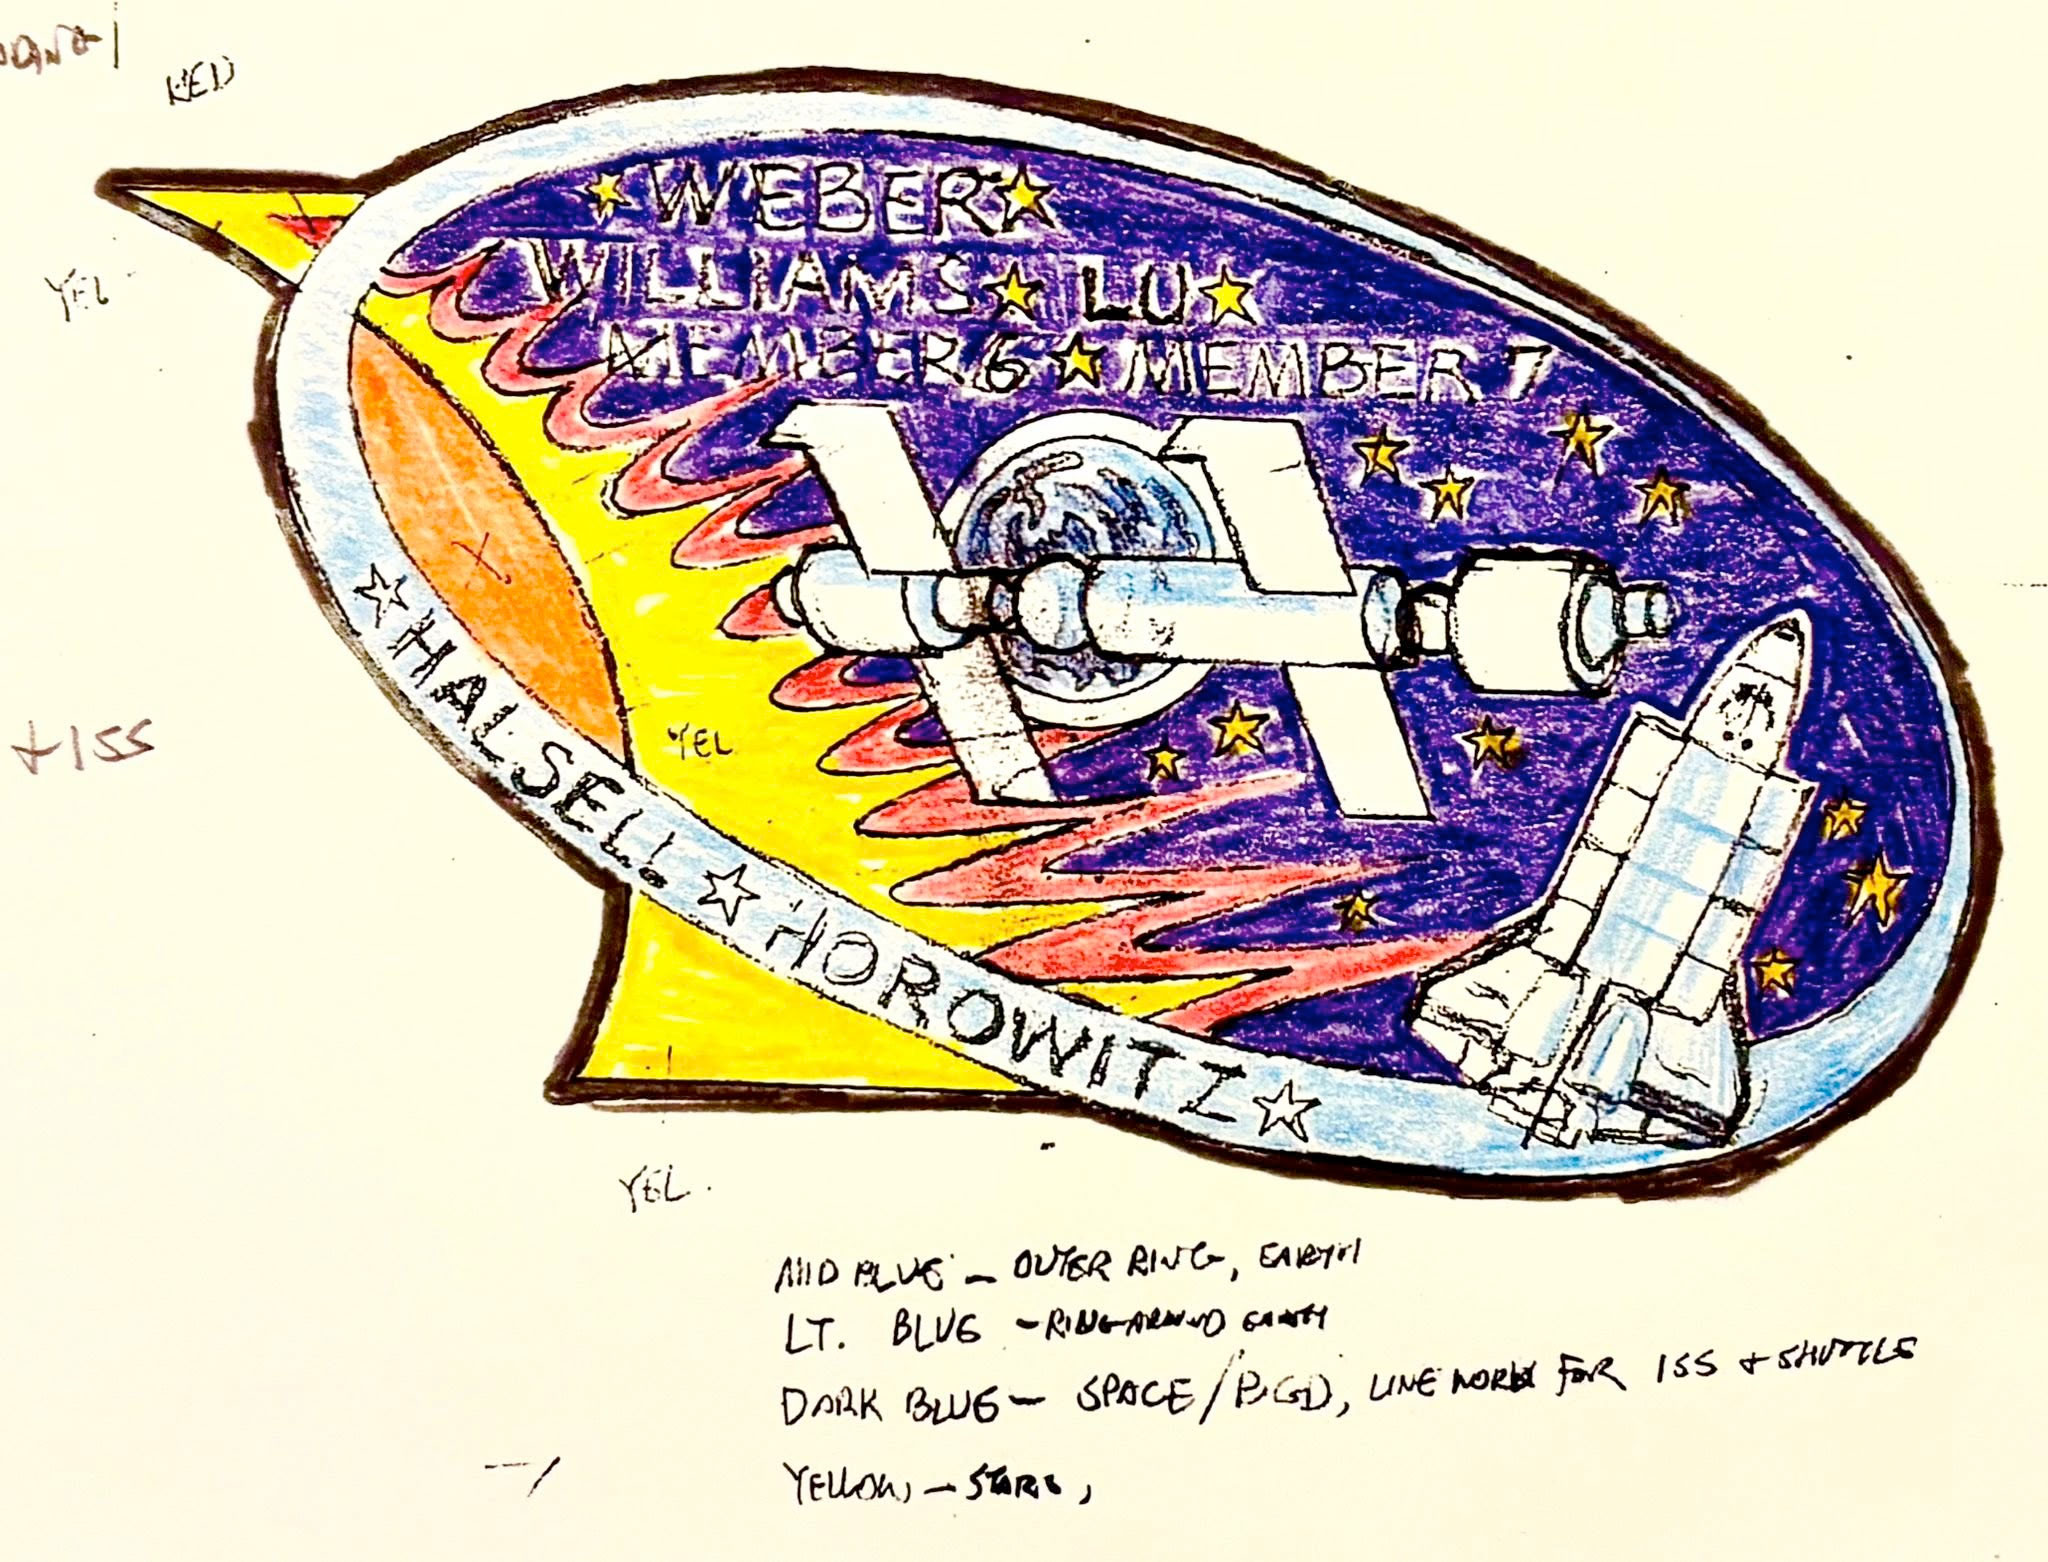 RED
YEL
WEBER
WILLIAMS LU
MEMBER 6 MEMBER 7
+ ISS
YEL
HALSELL HOROWITZ
YEL.
MID BLUE – OUTER RING, EARTH
LT. BLUE – RING AROUND EARTH
DARK BLUE – SPACE/BGD, LINE WORK FOR ISS + SHUTTLE
YELLOW – STARS,